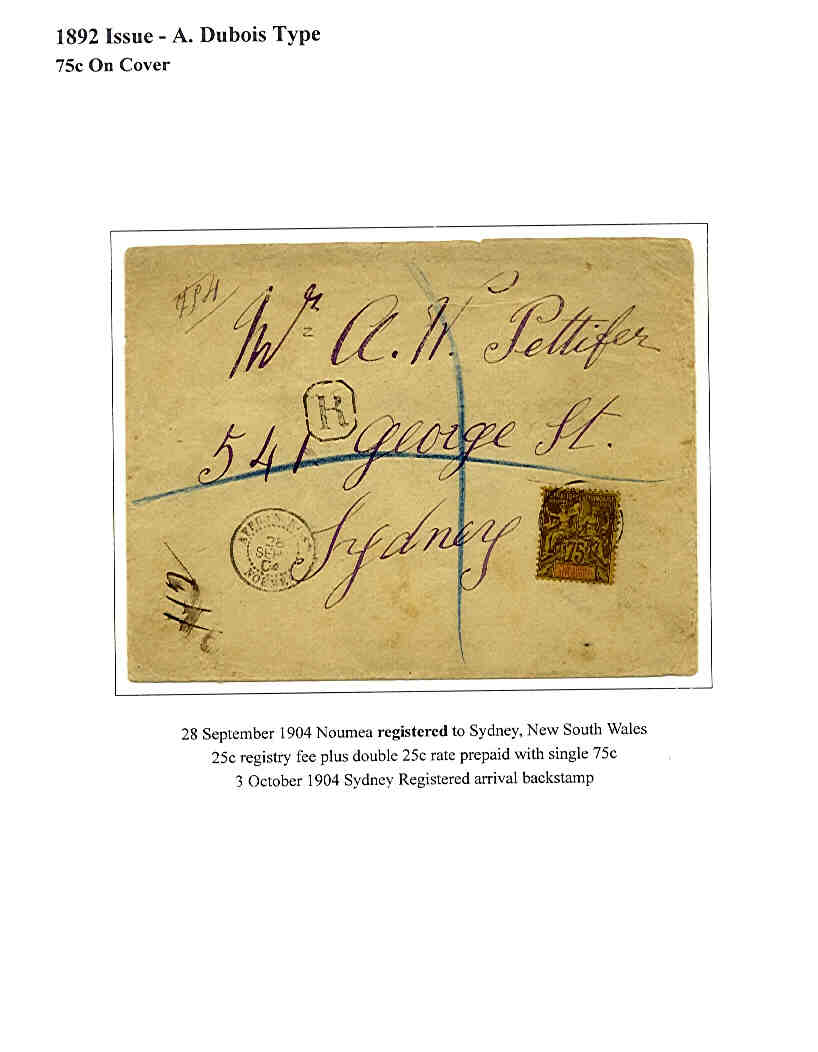 1892 Issue - A. Dubois Type
75c On Cover
Mr A. W. Pettifer
R
541 George St.
Sydney
28
SEP
04
NOUMEA
75
28 September 1904 Noumea registered to Sydney, New South Wales
25c registry fee plus double 25c rate prepaid with single 75c
3 October 1904 Sydney Registered arrival backstamp